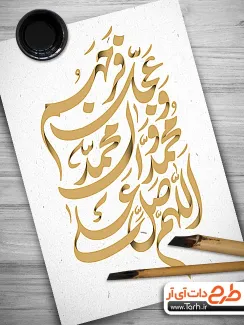 اللهم صل علی
محمد و آل محمد
و عجل فرجهم
طرح دات آی آر
www.Tarh.ir